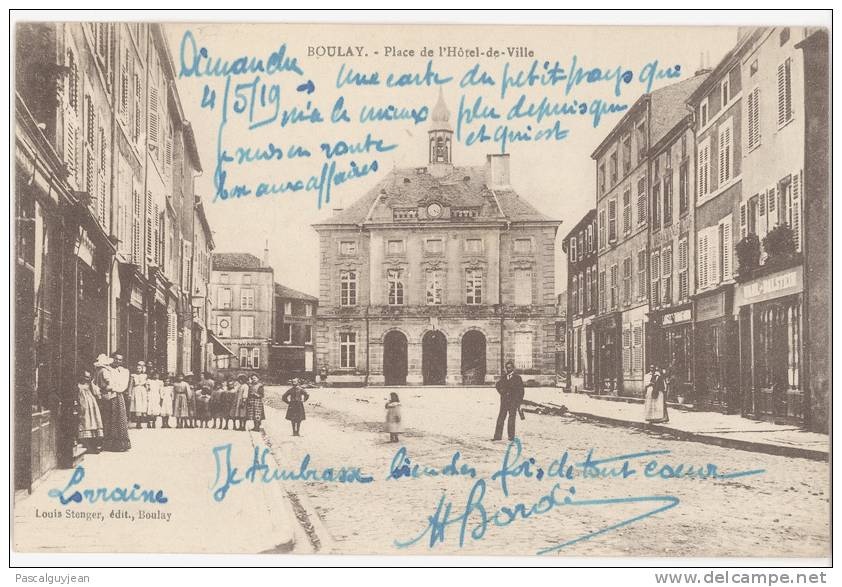 BOULAY. - Place de l'Hôtel-de-Ville
Dimanche
4/5/19
Une carte du petit pays que
m'a le mieux plu depuis que
je suis en route et qui est
bon aux affaires
Je t'embrasse bien des fois, de tout coeur
Lorraine
H Bordi
Louis Stenger, édit., Boulay
Pascalguyjean
http://www.delcampe.net